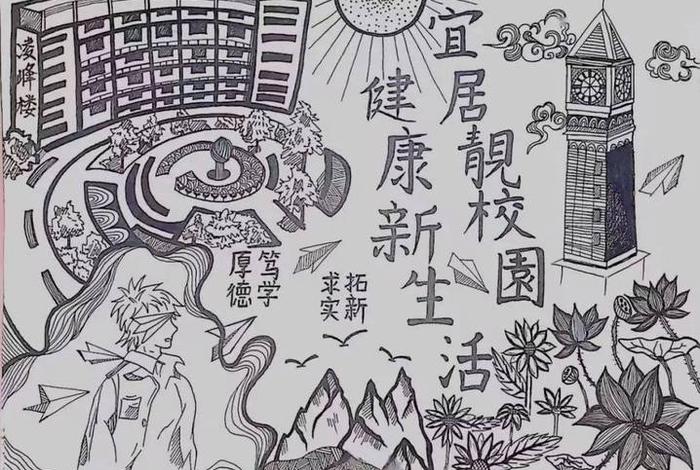 凌峰楼
宜居靚校園
健康新生活
笃学
厚德
拓新
求实